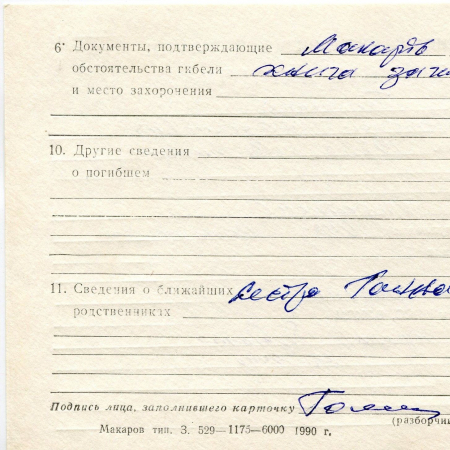 6· Документы, подтверждающие
обстоятельства гибели книга
и место захоронения
10. Другие сведения
о погибшем
11. Сведения о ближайших сестра
родственниках
Подпись лица, заполнившего карточку
(разборчи
Макаров тип. З. 529—1175—6000 1990 г.